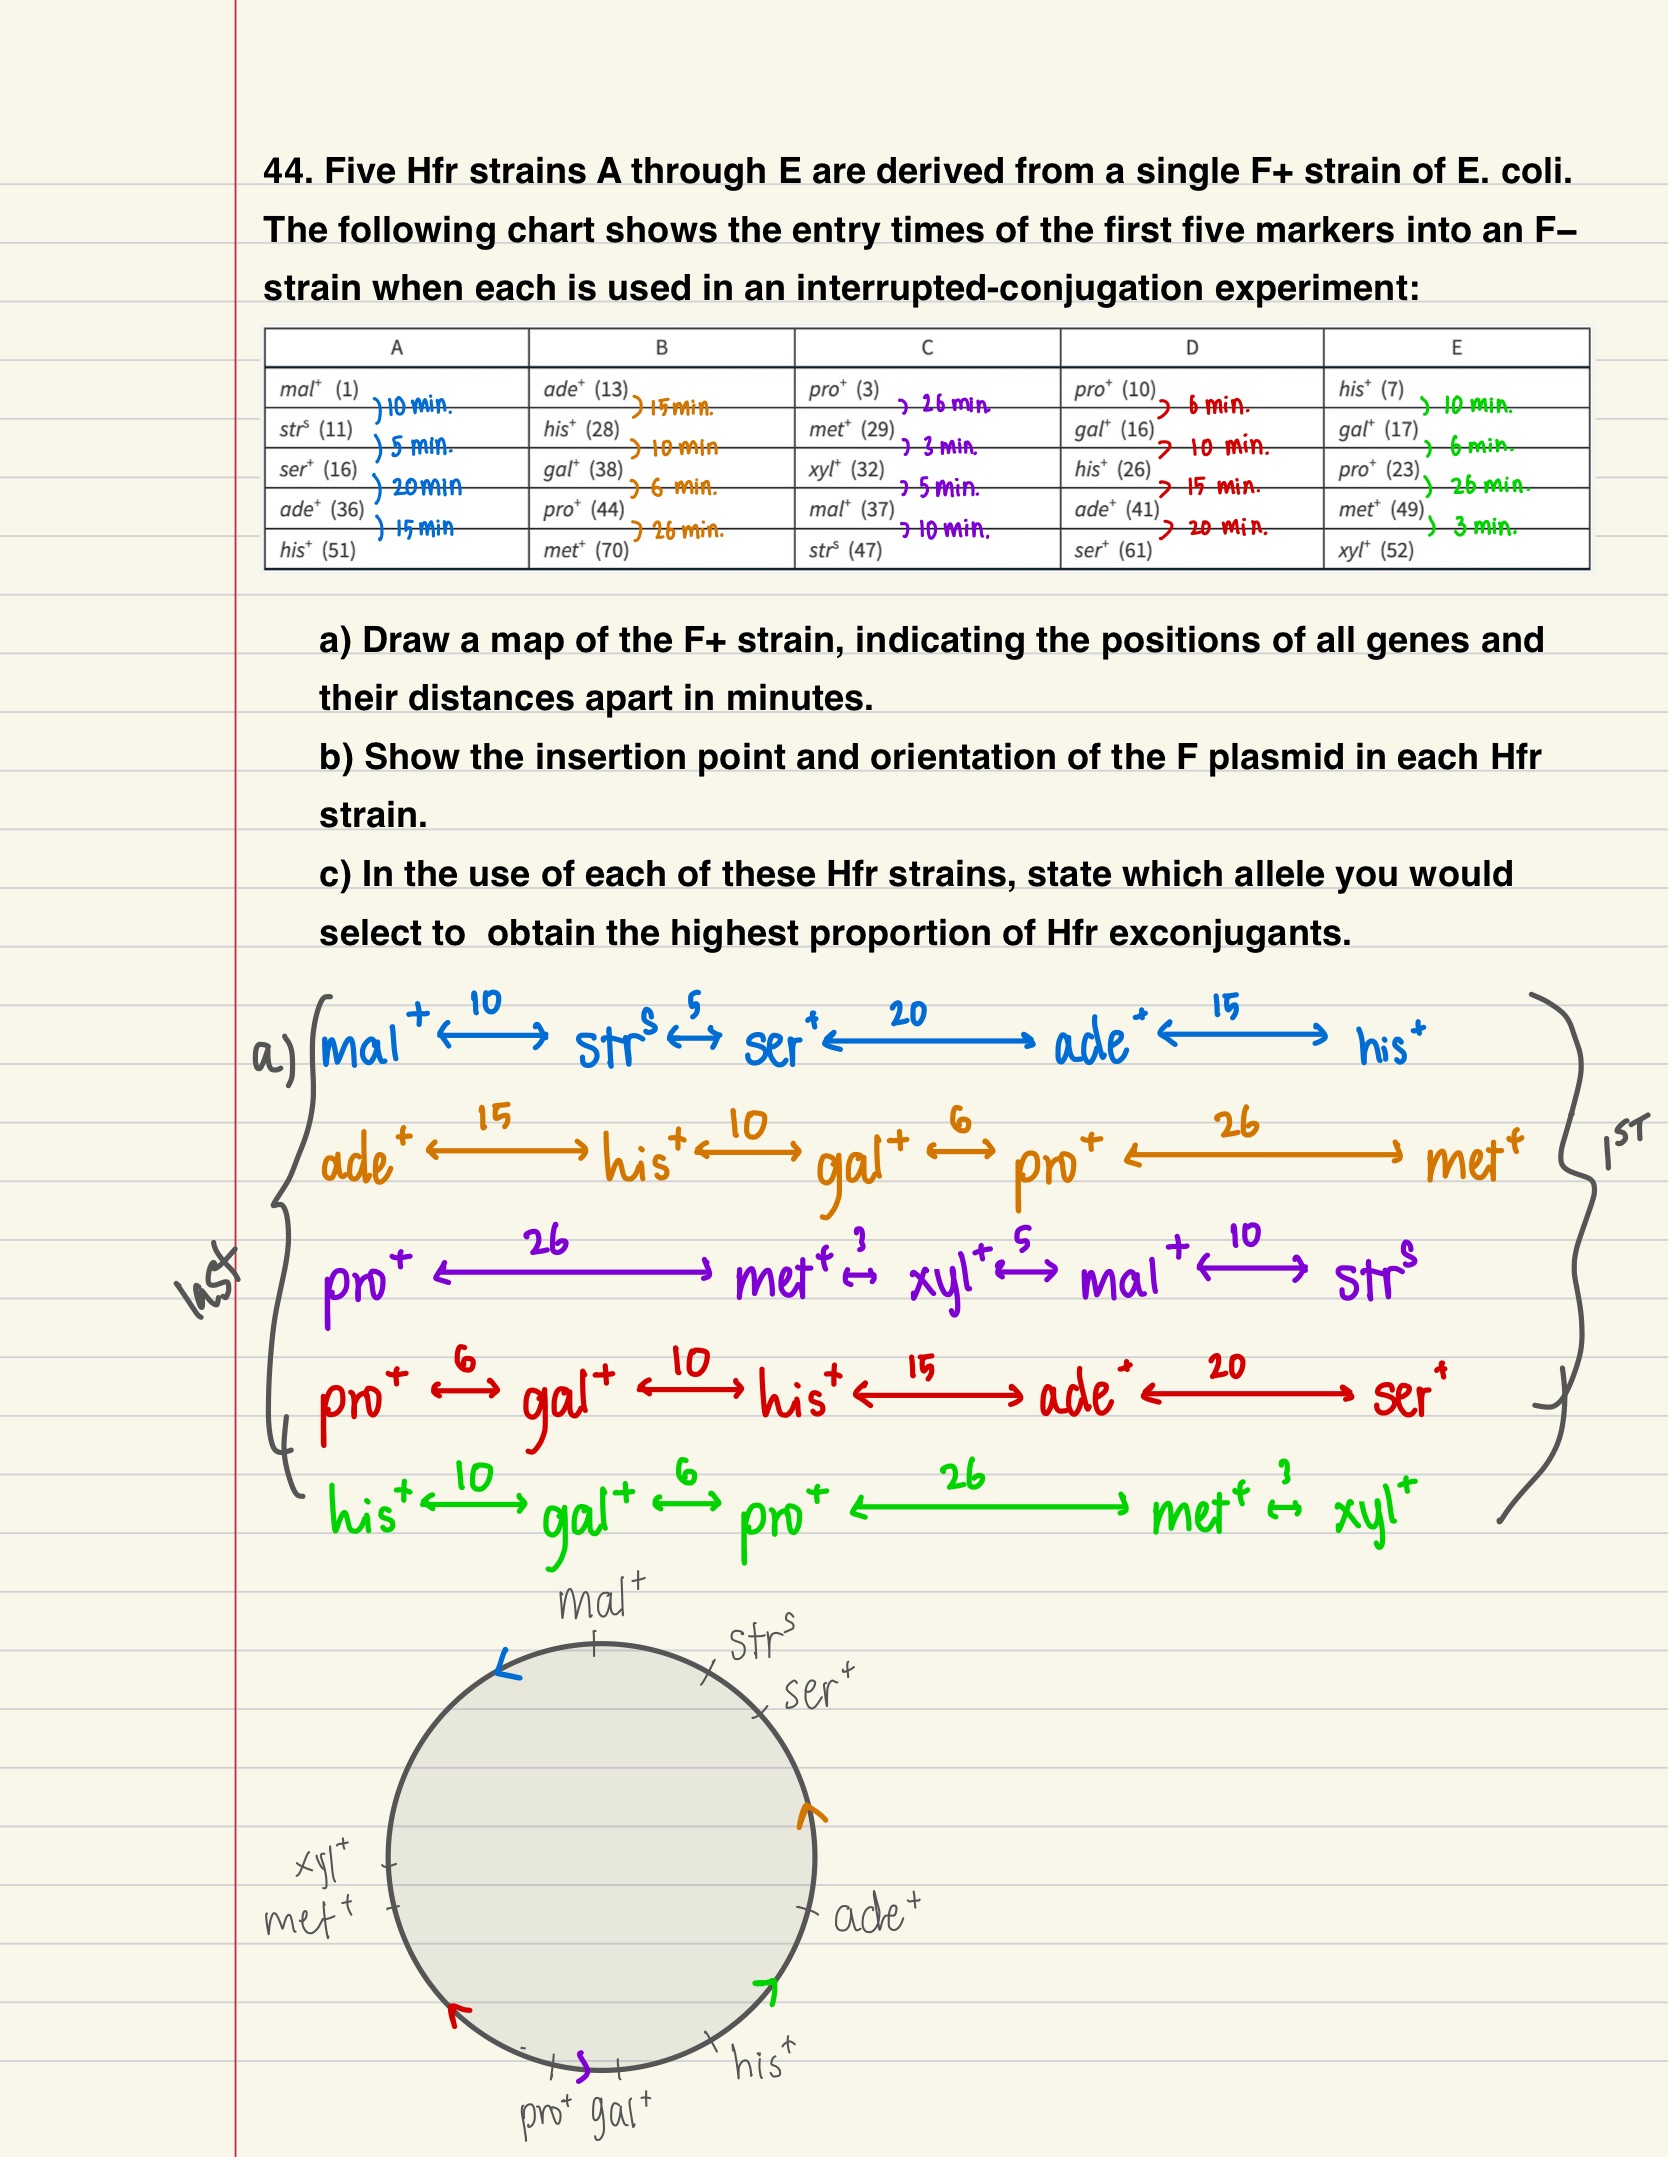 44. Five Hfr strains A through E are derived from a single F+ strain of E. coli.
The following chart shows the entry times of the first five markers into an F–
strain when each is used in an interrupted-conjugation experiment:
A B C D E
mal⁺ (1) ade⁺ (13) pro⁺ (3) pro⁺ (10) his⁺ (7)
10 min. 15 min. 26 min. 6 min. 10 min.
strˢ (11) his⁺ (28) met⁺ (29) gal⁺ (16) gal⁺ (17)
5 min. 10 min 3 min. 10 min. 6 min.
ser⁺ (16) gal⁺ (38) xyl⁺ (32) his⁺ (26) pro⁺ (23)
20min 6 min. 5 min. 15 min. 26 min.
ade⁺ (36) pro⁺ (44) mal⁺ (37) ade⁺ (41) met⁺ (49)
15 min 26 min. 10 min. 20 min. 3 min.
his⁺ (51) met⁺ (70) strˢ (47) ser⁺ (61) xyl⁺ (52)
a) Draw a map of the F+ strain, indicating the positions of all genes and
their distances apart in minutes.
b) Show the insertion point and orientation of the F plasmid in each Hfr
strain.
c) In the use of each of these Hfr strains, state which allele you would
select to obtain the highest proportion of Hfr exconjugants.
10 5 20 15
a) mal⁺ strˢ ser⁺ ade⁺ his⁺
15 10 6 26
ade⁺ his⁺ gal⁺ pro⁺ met⁺
1ST
26 3 5 10
last pro⁺ met⁺ xyl⁺ mal⁺ strˢ
6 10 15 20
pro⁺ gal⁺ his⁺ ade⁺ ser⁺
10 6 26 3
his⁺ gal⁺ pro⁺ met⁺ xyl⁺
mal⁺
strˢ
ser⁺
xyl⁺
met⁺ ade⁺
his⁺
pro⁺ gal⁺